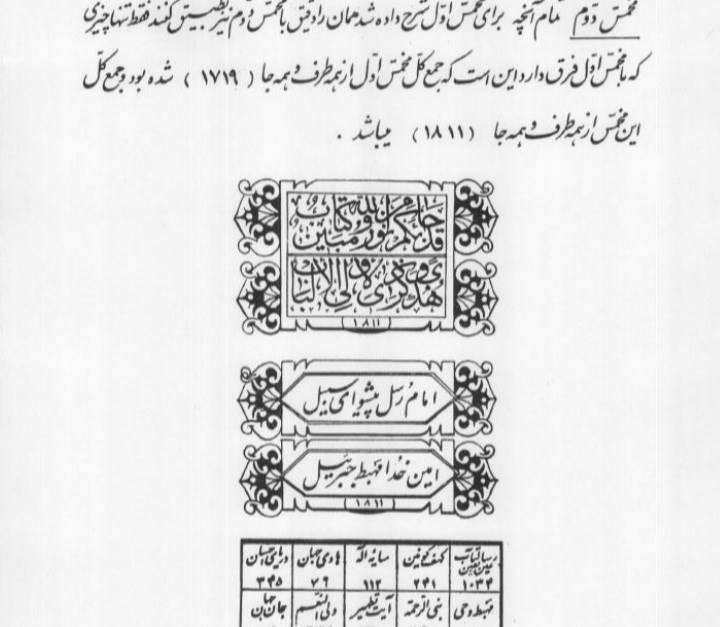 مخمّس دوّم تمام آنچه برای مخمّس اوّل شرح داده شد همان را دقیق با مخمّس دوّم نیز تطبیق کنند فقط تنها چیزی
که با مخمّس اوّل فرق دارد این است که جمع کل مخمّس اوّل از همه طرف و همه جا ( ۱۷۱۹ ) شده بود و جمع کل
این مخمّس از همه طرف و همه جا ( ۱۸۱۱ ) میباشد .
قد جاءکم من الله نور و کتاب مبین
هدی و ذکری لاولی الالباب
۱۸۱۱
امام رسل پیشوای سبیل
امین خدا مهبط جبرئیل
۱۸۱۱
رسالتآب کهف کونین سایهٔ اله هادی جهان دریای احسان
۱۰۳۴ ۲۴۱ ۱۱۲ ۷۶ ۳۴۵
مهبط وحی نبی الرحمة آیت تطهیر ولی النعم جان جهان